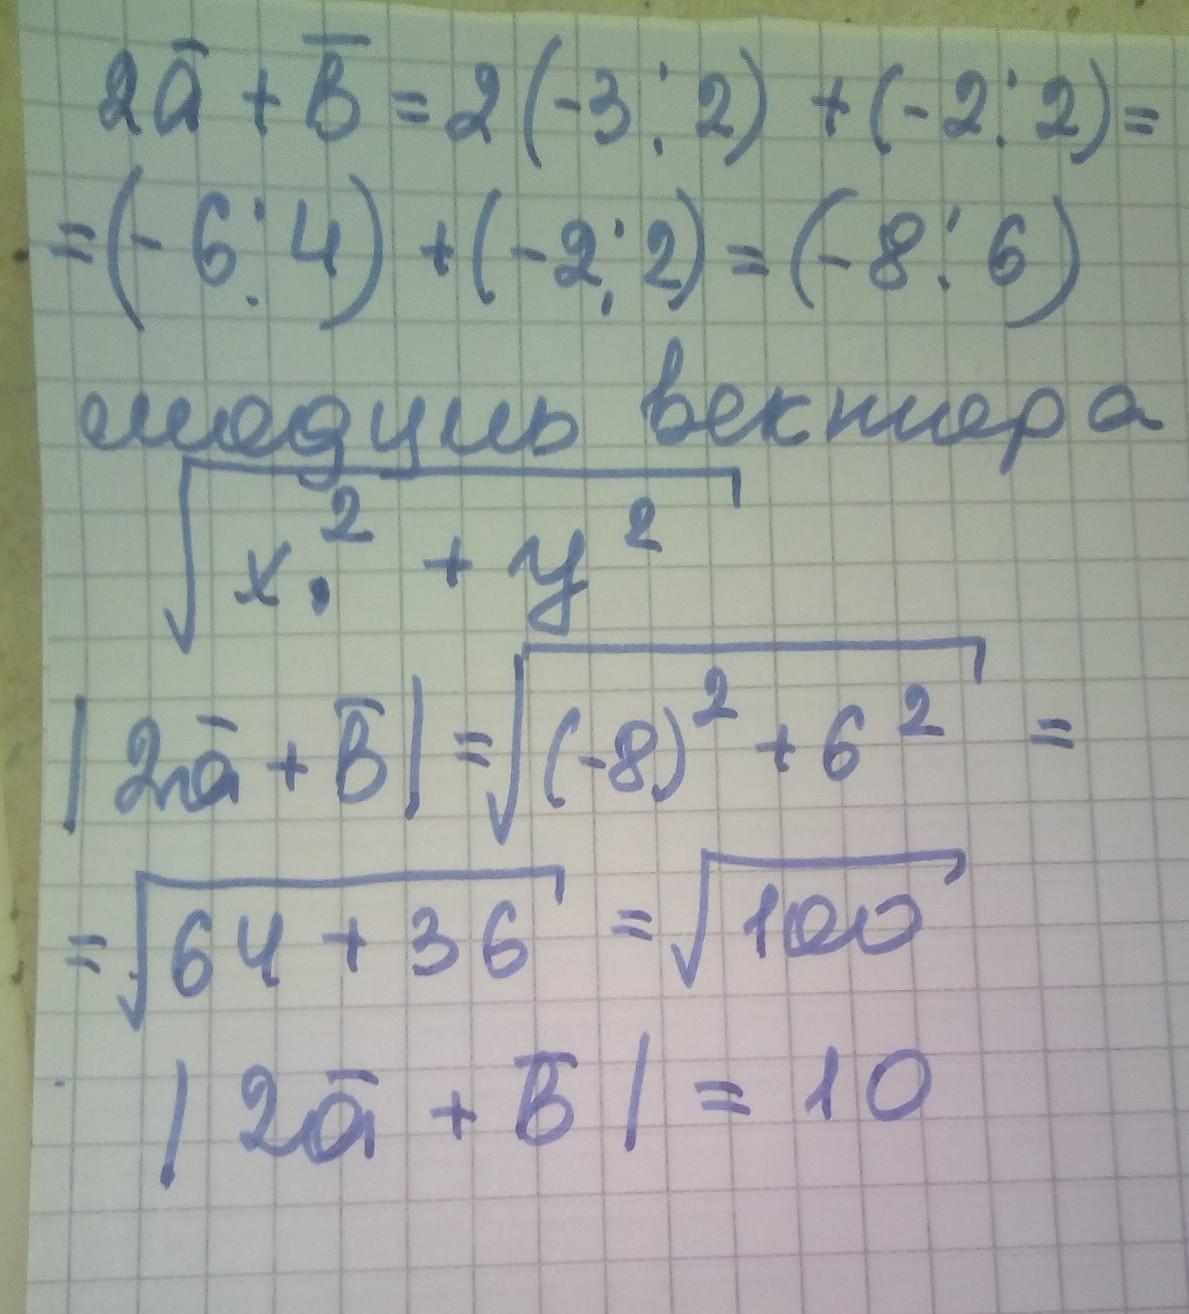 2a̅ + b̅ = 2(-3; 2) + (-2; 2) =
= (-6; 4) + (-2; 2) = (-8; 6)
модуль вектора
√(x² + y²)
|2a̅ + b̅| = √((-8)² + 6²) =
= √(64 + 36) = √100
|2a̅ + b̅| = 10